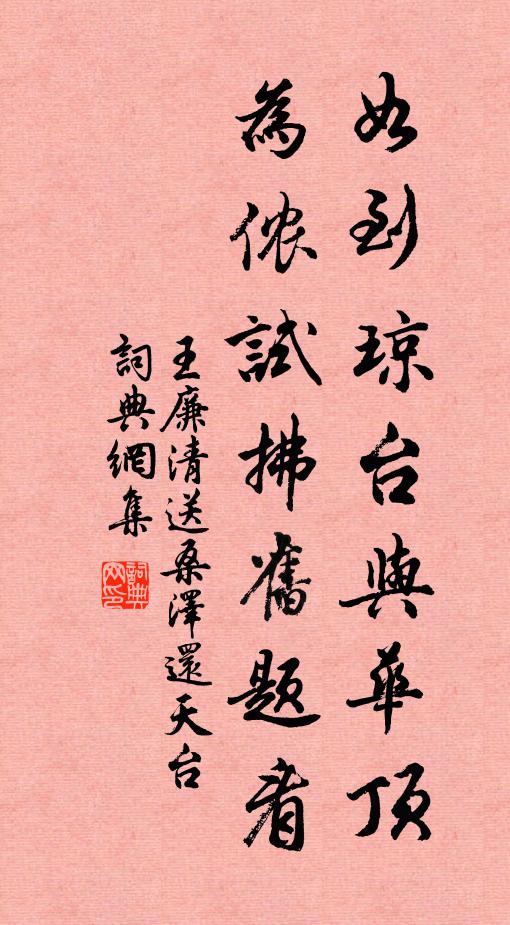 如到琼台與華顶
為侬試拂舊题看
王廉清送桑澤還天台
詞典網集
詞典
网印